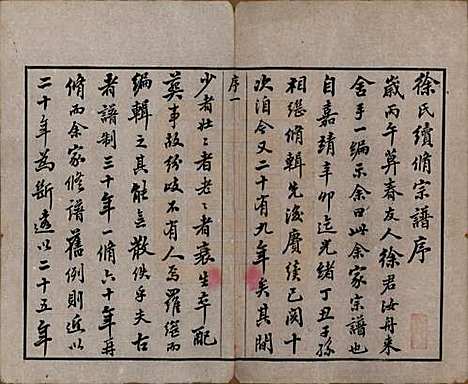 徐氏續脩宗譜序
歲丙午莫春友人徐君汝舟來
舍手一編示余曰此余家宗譜也
自嘉靖辛卯迄光緒丁丑王孫
相繼脩輯先後賡續已閱十
次洎今又二十有九年矣其間
序一
少者壯壯者老老者衰生卒配
葬事故紛歧不有人焉羅緝而
編輯之其能無散佚乎夫古
者譜制三十年一脩六十年再
脩而余家修譜舊例則近以
二十年為斷遠以二十五年